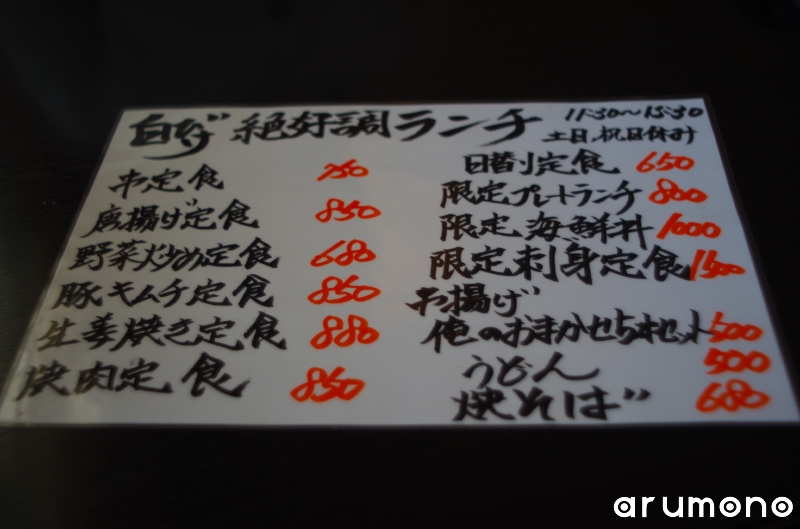 絶好調ランチ 11:30〜15:30
土日、祝日休み
串定食 750
唐揚げ定食 850
野菜炒め定食 680
豚キムチ定食 850
生姜焼き定食 880
焼肉定食 850
日替り定食 650
限定プレートランチ 800
限定海鮮丼 1000
限定刺身定食 1500
お揚げ
俺のおまかせ5本セット 500
うどん 500
焼そば 680
arumono